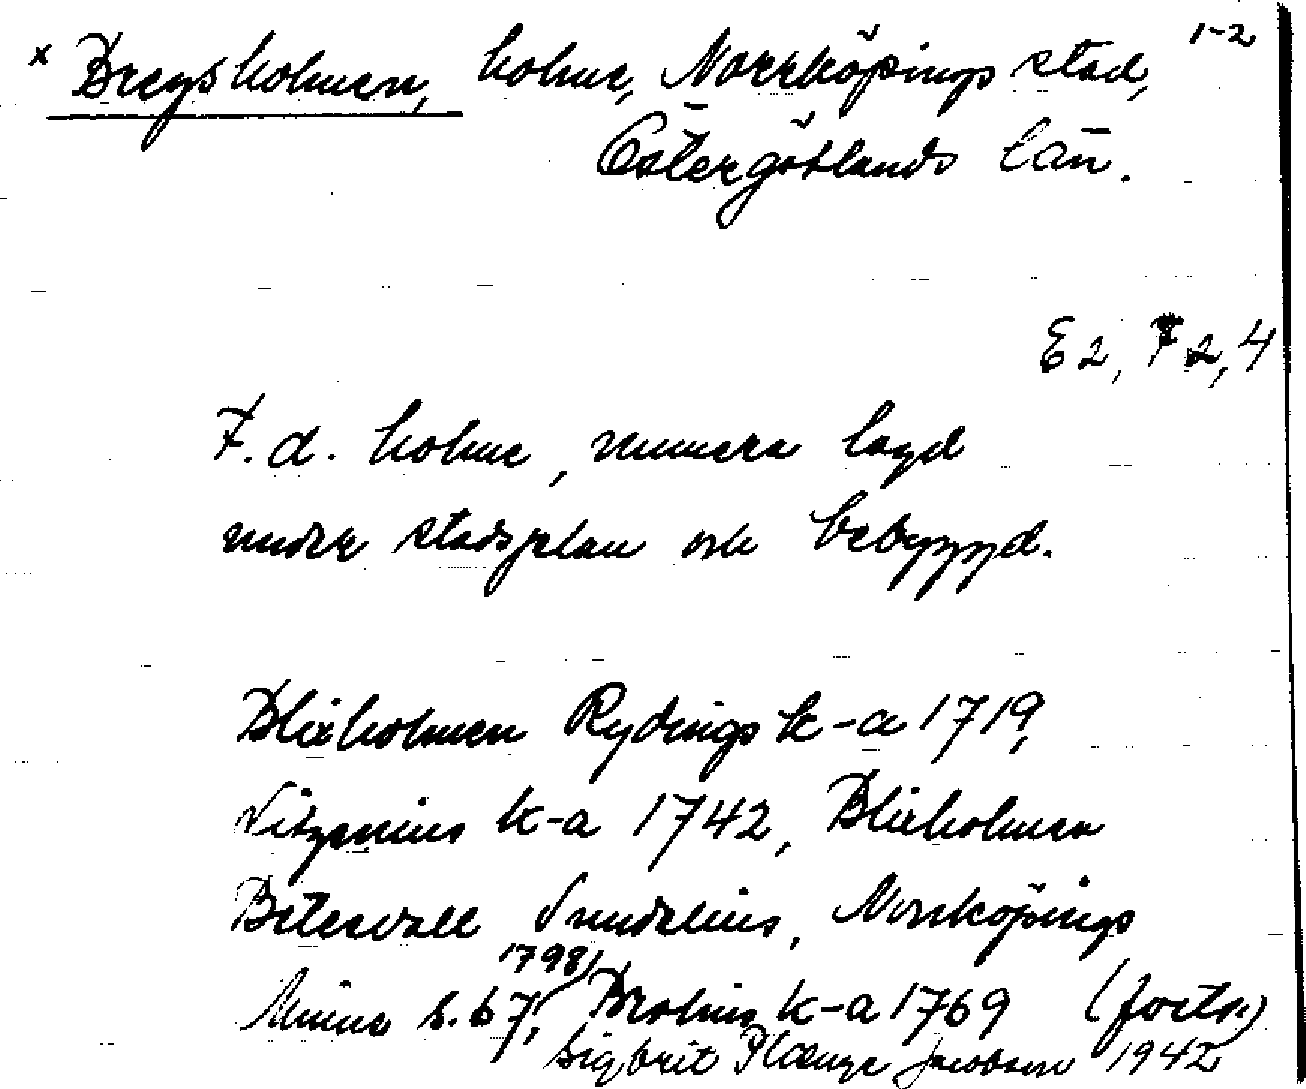 x Bregsholmen, holme, Norrköpings stad, 1-2
Östergötlands län.
E 2, F 2, 4
F. d. holme, numera lagd
under stadsplan och bebyggd.
Blixholmen Rydings k-a 1719,
k-a 1742, Blixholmen
Sundelius, Norrköpings
Minne s. 67, 1798, Brolins k-a 1769 (forts.)
Sigbrit Plænge Jacobson 1942